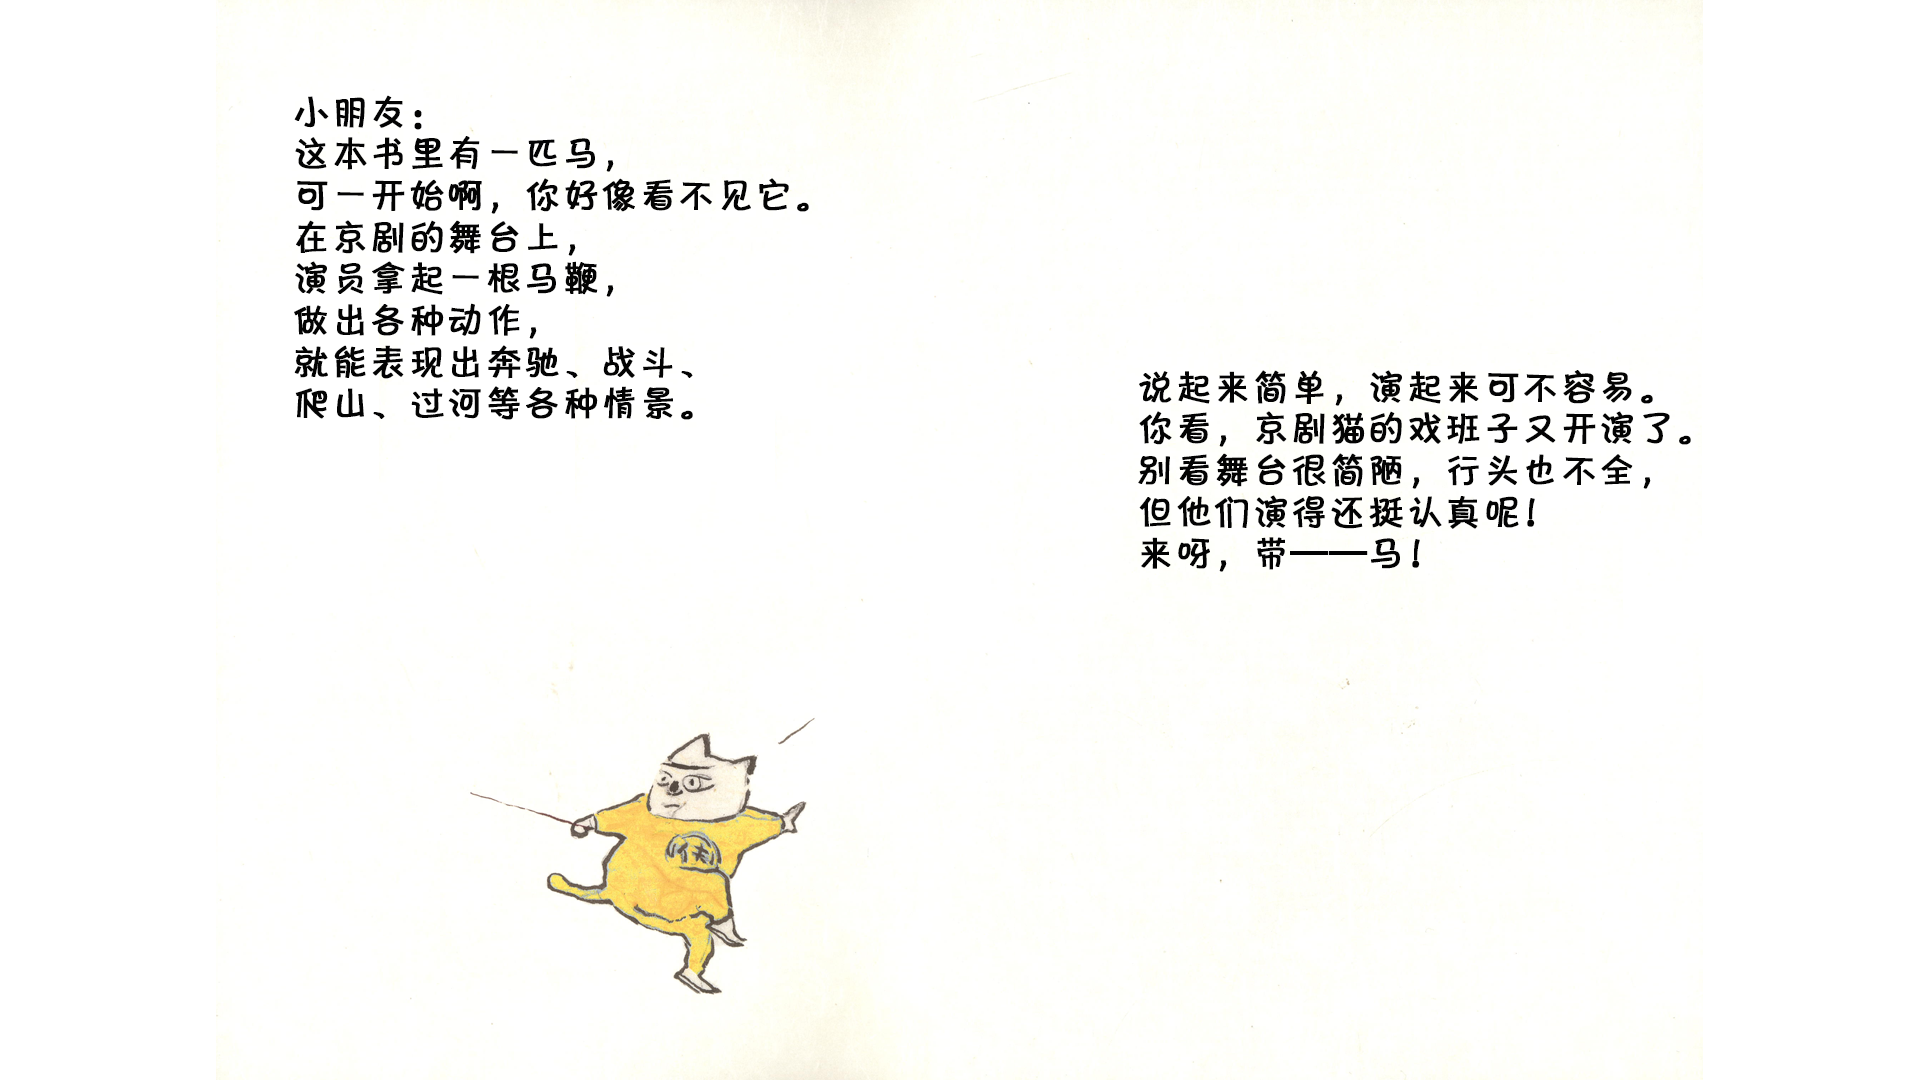 小朋友：
这本书里有一匹马，
可一开始啊，你好像看不见它。
在京剧的舞台上，
演员拿起一根马鞭，
做出各种动作，
就能表现出奔驰、战斗、
爬山、过河等各种情景。
说起来简单，演起来可不容易。
你看，京剧猫的戏班子又开演了。
别看舞台很简陋，行头也不全，
但他们演得还挺认真呢！
来呀，带——马！